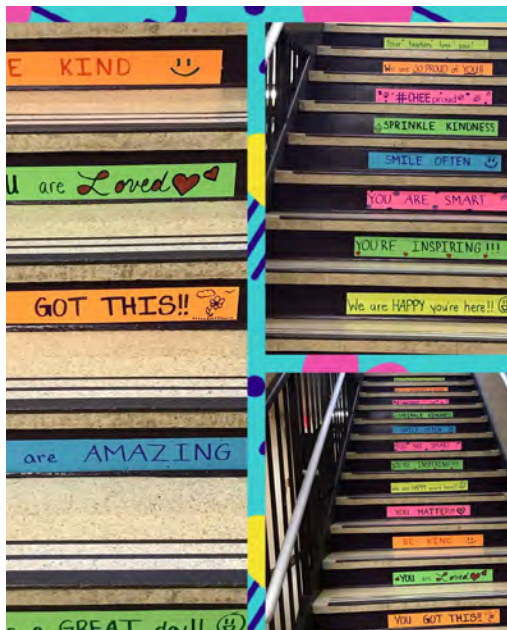 E KIND
U are Loved
GOT THIS!!
are AMAZING
a GREAT day!!
Your teachers love you!
We are SO PROUD of YOU!!
#CHEEproud
SPRINKLE KINDNESS
SMILE OFTEN
YOU ARE SMART
YOU'RE INSPIRING!!!
We are HAPPY you're here!!
SPRINKLE KINDNESS
SMILE OFTEN
YOU ARE SMART
YOU'RE INSPIRING!!!
We are HAPPY you're here!!
YOU MATTER!!
BE KIND
YOU are Loved
YOU GOT THIS!!